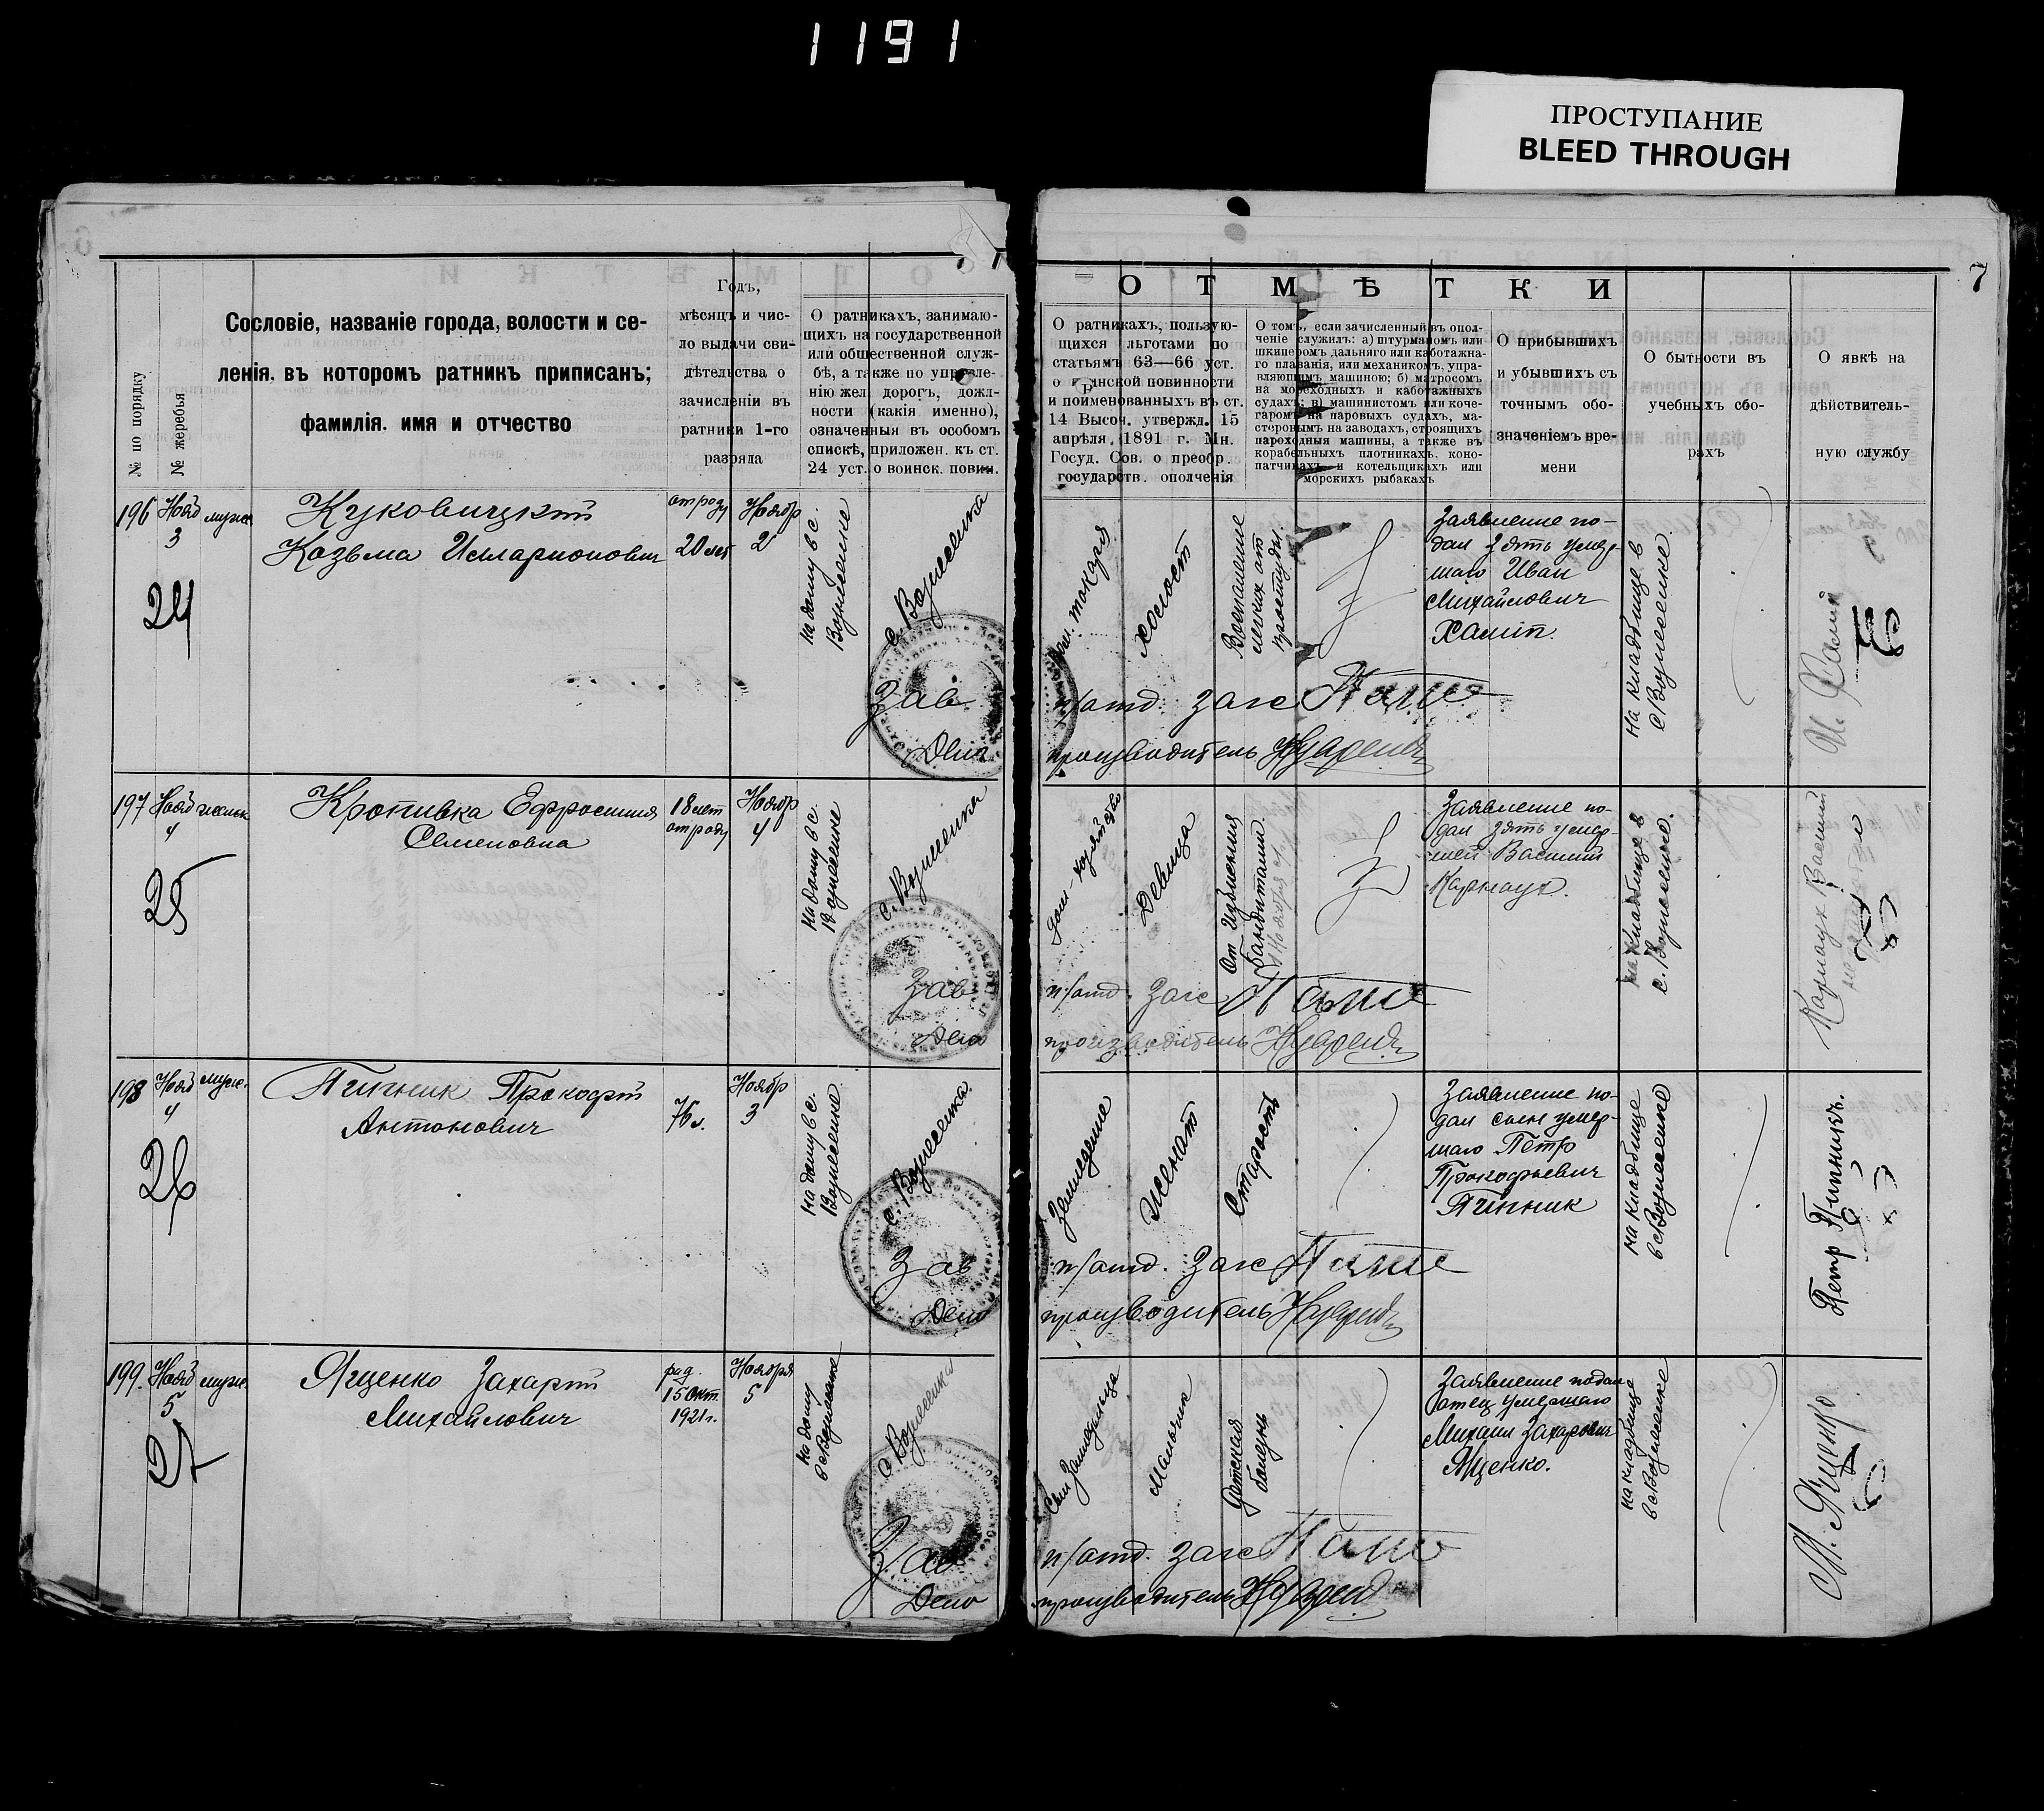 1191
ПРОСТУПАНИЕ
BLEED THROUGH
7
№ по порядку
№ жеребья
Сословіе, названіе города, волости и се-
ленія, въ которомъ ратникъ приписанъ;
фамилія, имя и отчество
Годъ,
мѣсяцъ и чис-
ло выдачи сви-
дѣтельства о
зачисленіи въ
ратники 1-го
разряда
О ратникахъ, занимаю-
щихъ на государственной
или общественной служ-
бѣ, а также по управле-
нію жел. дорогъ, долж-
ности (какія именно),
означенныя въ особомъ
спискѣ, приложен. къ ст.
24 уст. о воинск. повин.
ОТМѢТКИ
О ратникахъ, пользую-
щихся льготами по
статьямъ 63—66 уст.
о инской повинности
и поименованныхъ въ ст.
14 Высоч. утвержд. 15
апрѣля 1891 г. Мн.
Госуд. Сов. о преобр.
государств. ополченія
О томъ, если зачисленный въ опол-
ченіе служилъ: а) штурманомъ или
шкиперомъ дальняго или каботажна-
го плаванія, или механикомъ, упра-
вляющимъ машиною; б) матросомъ
на мореходныхъ и каботажныхъ
судахъ; в) машинистомъ или коче-
гаромъ на паровыхъ судахъ, ма-
стеровымъ на заводахъ, строящихъ
пароходныя машины, а также въ
корабельныхъ плотникахъ, коно-
патчикахъ и котельщикахъ или
морскихъ рыбакахъ
О прибывшихъ
и убывшихъ съ
точнымъ обо-
значеніемъ вре-
мени
О бытности въ
учебныхъ сбо-
рахъ
О явкѣ на
дѣйствитель-
ную службу
196 Нояб 3 муж.
24
Куковицкий
Козьма Илларионович
от роду
20 лет
Ноябр
2
на дому в с.
Вознесенке
с. Вознесенка
токаря
холост
Воспаление
легких от
простуды
Заявление по-
дал зять умер-
шаго Иван
Михайлович
Хамін.
на кладбище в
с Вознесенке
Зав. п/отд. Загс
Дело производитель
197 Нояб 4 женск
25
Кропивка Ефросиния
Семеновна
18 лет
от роду
Ноябр
4
на дому в с.
Вознесенке
с. Вознесенка
дом-хозяйство
Девица
От Изъяснения
бандитами
Заявление по-
дал зять умер-
шей Василий
Карнаух.
на кладбище в
с. Вознесенке.
Карнаух Василий
Зав п/отд. Загс
Дело производитель
198 Нояб 4 муж.
26
Пипник Прокофий
Антонович
76 л.
Ноябр
3
на дому в с.
Вознесенке
с. Вознесенка.
Земледелие
женат
Старость
Заявление по-
дал сын умер-
шаго Петр
Прокофьевич
Пипник
на кладбище
в с Вознесенке
Петр Пипникъ.
Зав п/отд. Загс
Дело производитель
199. Нояб 5 муж.
27
Ященко Захарий
Михайлович
род.
15 Окт.
1921 г.
Ноября
5
на дому
в с Вознесенке
с Вознесенка
Сын Земледельца
Мальчик
Детская
болезнь
Заявление подал
отец умершаго
Михаил Захарович
Ященко.
на кладбище
в с Вознесенке
М. Ященко
Зав п/отд. Загс
Дело производитель